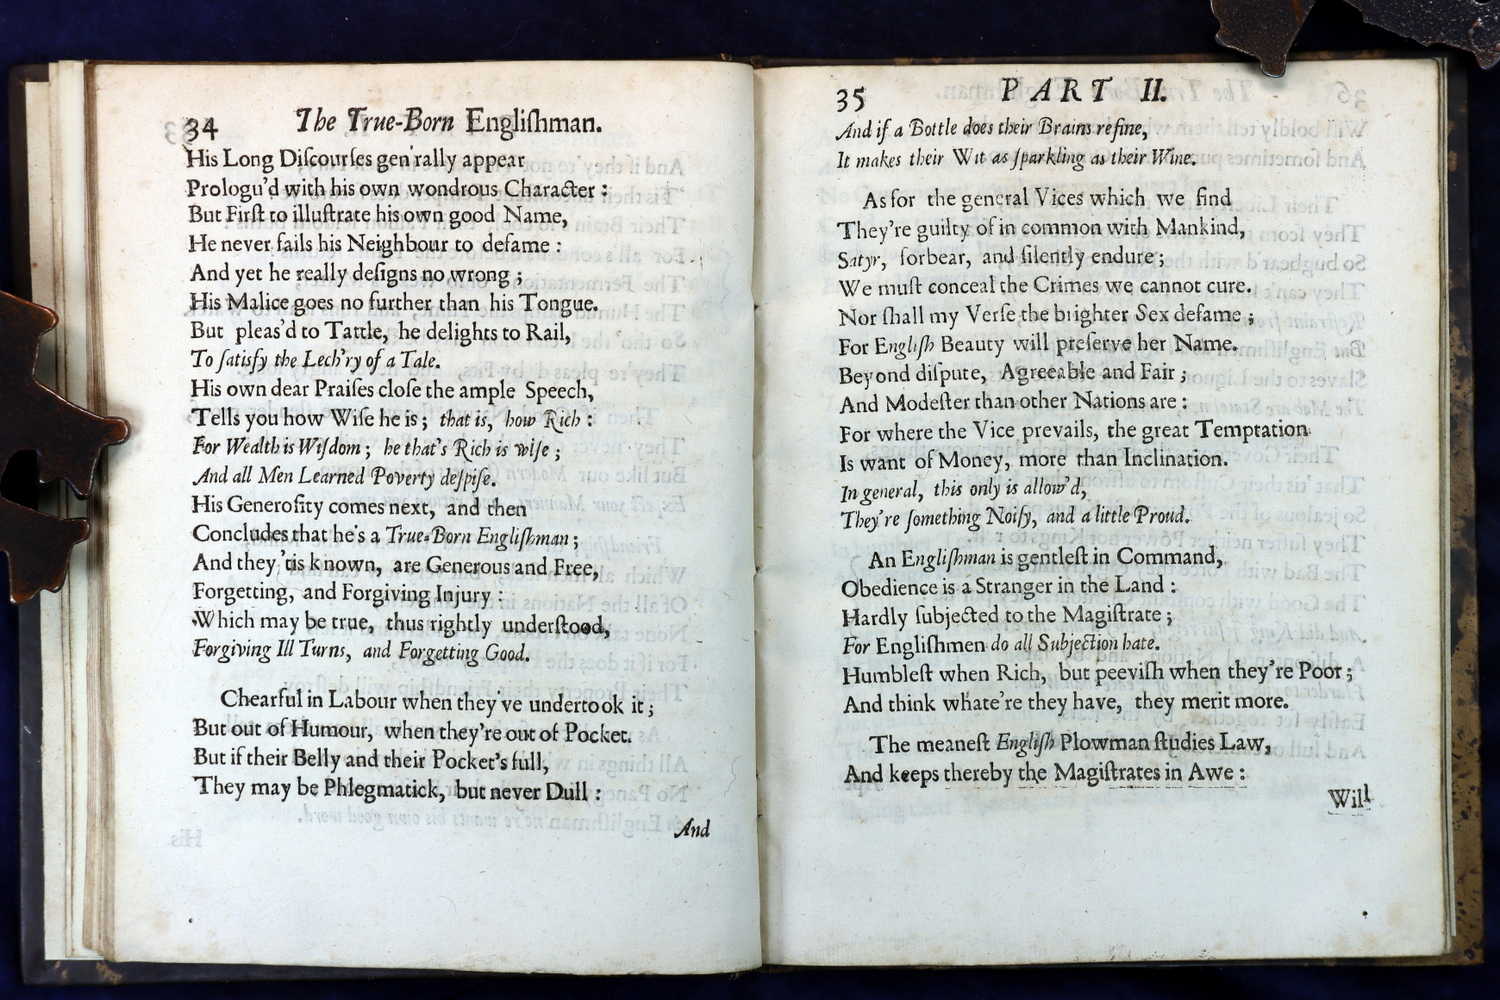 34 The True-Born Engliſhman.
His Long Diſcourſes gen'rally appear
Prologu'd with his own wondrous Character :
But Firſt to illuſtrate his own good Name,
He never fails his Neighbour to defame :
And yet he really deſigns no wrong ;
His Malice goes no further than his Tongue.
But pleas'd to Tattle, he delights to Rail,
To ſatisfy the Lech'ry of a Tale.
His own dear Praiſes cloſe the ample Speech,
Tells you how Wiſe he is ; that is, how Rich :
For Wealth is Wiſdom ; he that's Rich is wiſe ;
And all Men Learned Poverty deſpiſe.
His Generoſity comes next, and then
Concludes that he's a True-Born Engliſhman ;
And they 'tis known, are Generous and Free,
Forgetting, and Forgiving Injury :
Which may be true, thus rightly underſtood,
Forgiving Ill Turns, and Forgetting Good.
Chearful in Labour when they've undertook it ;
But out of Humour, when they're out of Pocket.
But if their Belly and their Pocket's full,
They may be Phlegmatick, but never Dull :
And
35 PART II.
And if a Bottle does their Brains refine,
It makes their Wit as ſparkling as their Wine.
As for the general Vices which we find
They're guilty of in common with Mankind,
Satyr, forbear, and ſilently endure ;
We muſt conceal the Crimes we cannot cure.
Nor ſhall my Verſe the brighter Sex defame ;
For Engliſh Beauty will preſerve her Name.
Beyond diſpute, Agreeable and Fair ;
And Modeſter than other Nations are :
For where the Vice prevails, the great Temptation
Is want of Money, more than Inclination.
In general, this only is allow'd,
They're ſomething Noiſy, and a little Proud.
An Engliſhman is gentleſt in Command,
Obedience is a Stranger in the Land :
Hardly ſubjected to the Magiſtrate ;
For Engliſhmen do all Subjection hate.
Humbleſt when Rich, but peeviſh when they're Poor ;
And think whate're they have, they merit more.
The meaneſt Engliſh Plowman ſtudies Law,
And keeps thereby the Magiſtrates in Awe :
Will